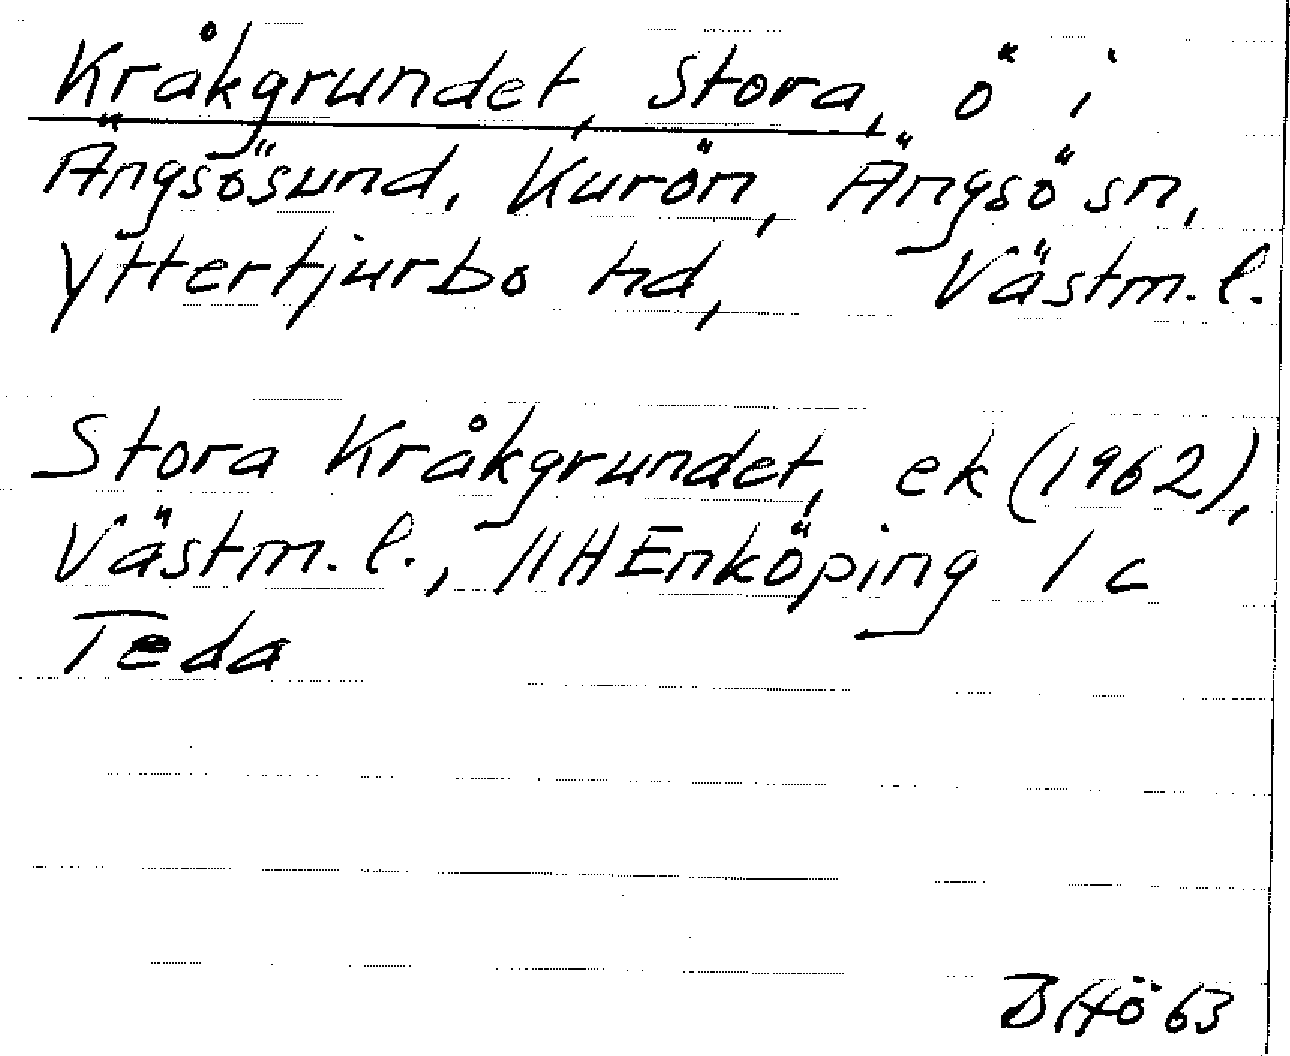 Kråkgrundet, Stora, ö i
Ängsösund, Kurön, Ängsö sn,
Yttertjurbo hd, Västm. l.
Stora Kråkgrundet, ek (1962),
Västm. l., 11H Enköping 1 c
Teda
BHö 63